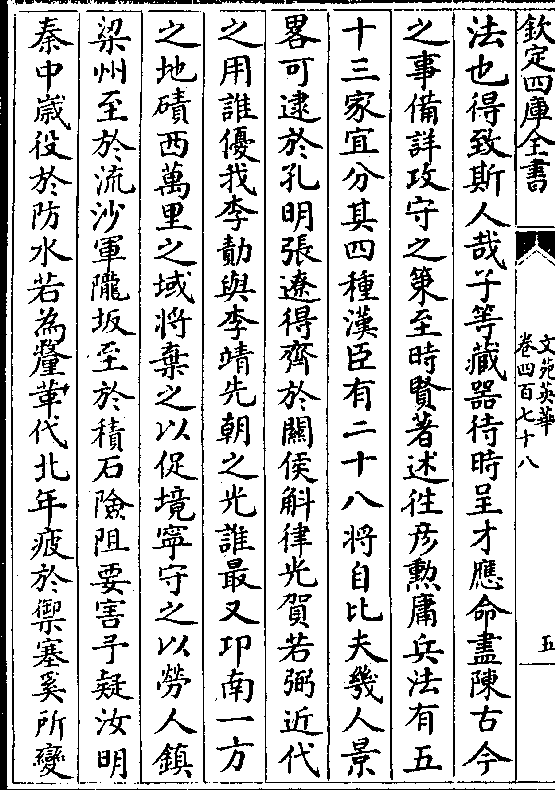 欽定四庫全書
文苑英華
卷四百七十八
五
法也得致斯人哉子等藏器待時呈才應命盡陳古今
之事備詳攻守之策至時賢著述徃彦勲庸兵法有五
十三家宜分其四種漢臣有二十八將自比夫幾人景
畧可逮於孔明張遼得齊於關侯斛律光賀若弼近代
之用誰優我李勣與李靖先朝之光誰最又卭南一方
之地磧西萬里之域將棄之以促境寧守之以勞人鎮
梁州至於流沙軍隴坂至於積石險阻要害予疑汝明
秦中歳役於防水若為釐革代北年疲於禦塞奚所變